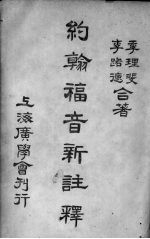 季理斐
李路德
合著
約翰福音新註釋
上海廣學會刊行